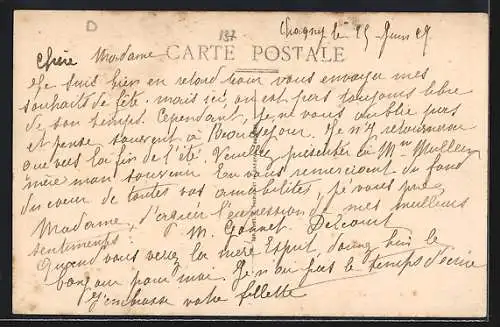 D
137
Chagny le 25 Juin 29
CARTE POSTALE
Chère Madame
Je suis bien en retard pour vous envoyer mes
souhaits de fête. mais ici on est pas toujours libre
de son temps. Cependant, je ne vous oublie pas
et pense souvent à Beauséjour. Je n'y retournerai
que vers la fin de l'été. Veuillez présenter à Mme Mulleur
mère mon souvenir En vous remerciant du fond
du coeur de toutes vos amabilités, je vous prie
Madame, d'agréer l'expression de mes meilleurs
sentiments. M. Gonnet
Quand vous verrez la mère Esprit, donnez lui le
bonjour pour moi. Je n'ai pas le temps d'écrire
J'embrasse votre fillette